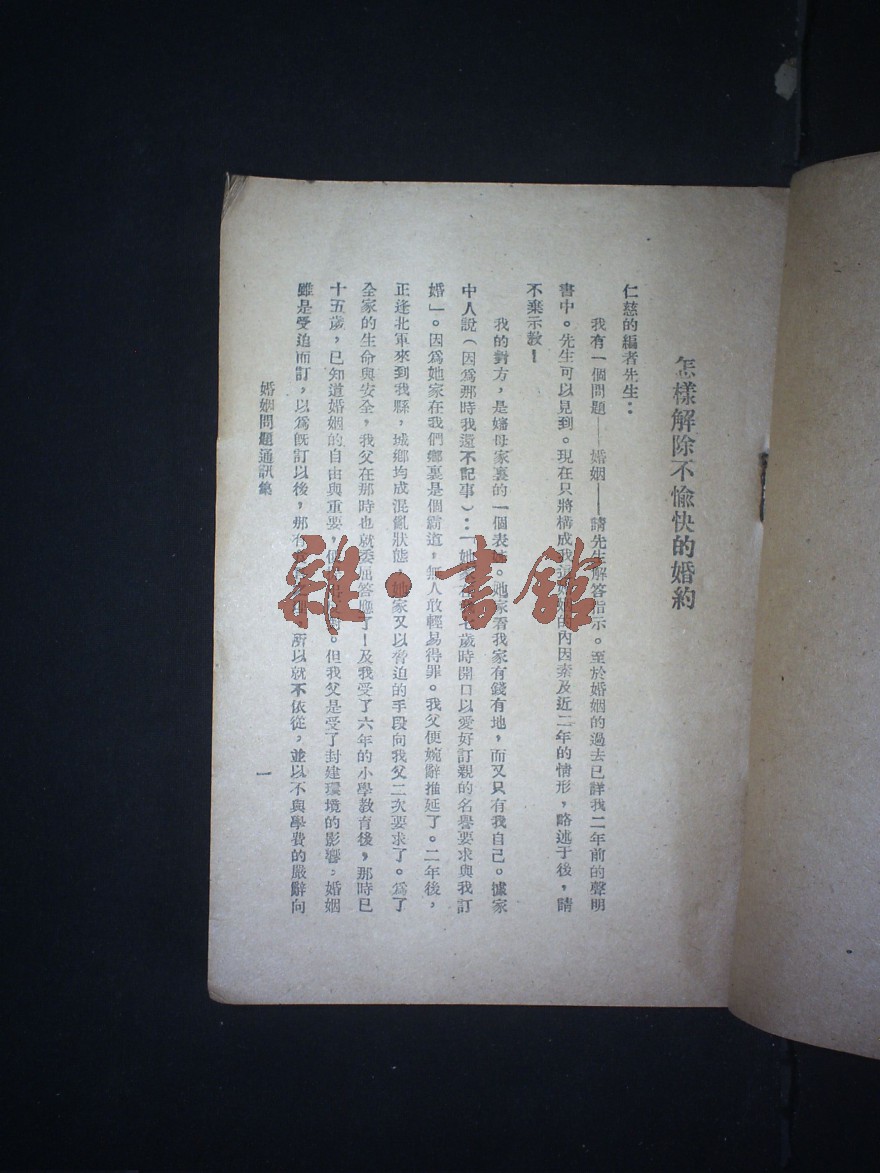 怎樣解除不愉快的婚約
仁慈的編者先生：
我有一個問題——婚姻——請先生解答指示。至於婚姻的過去已詳我二年前的聲明
書中。先生可以見到。現在只將構成我 的內因素及近二年的情形，略述于後，請
不棄示教！
我的對方，是嬸母家裏的一個表 。她家看我家有錢有地，而又只有我自己。據家
中人說（因爲那時我還不記事）：「她 歲時開口以愛好訂親的名譽要求與我訂
婚」。因爲她家在我們鄉裏是個霸道，無人敢輕易得罪。我父便婉辭推延了。二年後，
正逢北軍來到我縣，城鄉均成混亂狀態，她家又以脅迫的手段向我父二次要求了。爲了
全家的生命與安全，我父在那時也就委屈答應了！及我受了六年的小學教育後，那時已
十五歲，已知道婚姻的自由與重要， 。但我父是受了封建環境的影響：婚姻
雖是受迫而訂，以爲旣訂以後，那 所以就不依從，並以不與學費的嚴辭向
婚姻問題通訊集
一
雜·書館